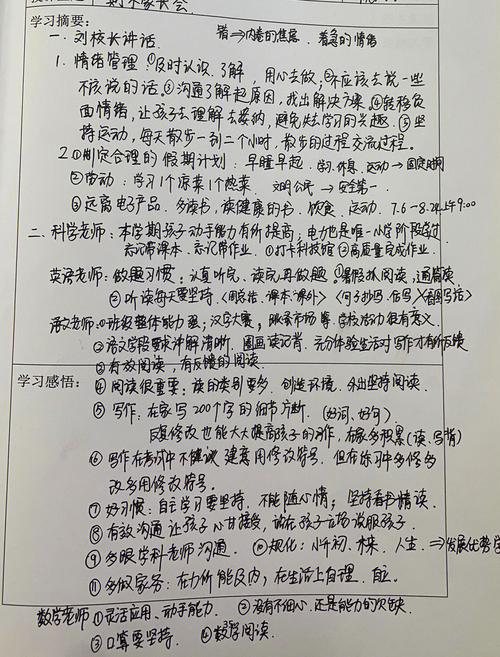 期末家长会
学习摘要:
错⇒内卷的焦虑 着急的情绪
一. 刘校长讲话.
1. 情绪管理 ①及时认识.了解,用心去做;②不应该去说一些
不该说的话.③沟通了解起原因,找出解决方案.④转移负
面情绪,让孩子去理解去接纳,避免失去学习的兴趣.⑤坚
持运动,每天散步一到二个小时,散步的过程交流过程.
2.①制定合理的假期计划:早睡早起.学习.休息.运动→固定时间
②劳动:学习1个凉菜1个热菜. 文明公民→安全第一.
③远离电子产品.多读书,读健康的书.饮食.运动. 7.6—8.24上午9:00
二、科学老师:本学期孩子动手能力有所提高;电力也是唯一小学阶段学过
忘记带课本.忘记带作业.①打卡科技馆②高质量完成作业.
英语老师:做题习惯:认真听完、读完再做题.①暑假抓阅读,通篇读.
②听读每天要坚持.(周总结.课本.课外)<句子抄写.仿写>看图写话>
语文老师:①班级整体能力强;汉字大赛,跳蚤市场等.学校活动很有意义.
②语文学段要求讲解清晰.圈画读记背.充分体验生活对写作才有所反馈
③有效阅读,有反馈的阅读.
学习感悟:
④阅读很重要:读的类别要多.创造环境.外出坚持阅读.
⑤写作:在家写200个字的细节片断.(好词、好句)
反复修改也能大大提高孩子的写作,在家多积累(读、写、背)
⑥写作在考试中不建议用修改符号.但在练习中多修多
改多用修改符号.
⑦好习惯:自主学习要坚持,不能随心情;坚持看书情读.
⑧有效沟通让孩子心甘接受,站在孩子立场说服孩子.
⑨多跟学科老师沟通. ⑩规化:小升初、林、人生.⇒发展优势学
⑪多做家务:在力所能及内,在生活上自理、自立.
数学老师①灵活应用、动手能力. ②没有不细心.还是能力的欠缺.
③口算要坚持. ④数学阅读.